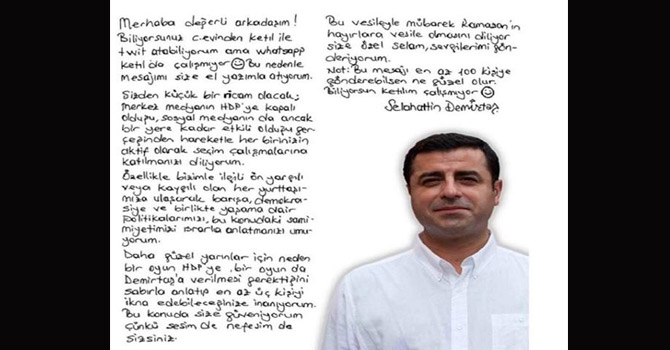 Merhaba değerli arkadaşım!
Biliyorsunuz c.evinden ketıl ile
twit atabiliyorum ama whatsapp
ketıl da çalışmıyor ☺ Bu nedenle
mesajımı size el yazımla atıyorum.
Sizden küçük bir ricam olacak;
merkez medyanın HDP'ye kapalı
olduğu, sosyal medyanın da ancak
bir yere kadar etkili olduğu ger-
çeğinden hareketle her birinizin
aktif olarak seçim çalışmalarına
katılmanızı diliyorum.
Özellikle bizimle ilgili ön yargılı
veya kaygılı olan her yurttaşı-
mıza ulaşarak barışa, demokra-
siye ve birlikte yaşama dair
politikalarımızı, bu konudaki sami-
miyetimizi ısrarla anlatmanızı umu-
yorum.
Daha güzel yarınlar için neden
bir oyun HDP'ye, bir oyun da
Demirtaş'a verilmesi gerektiğini
sabırla anlatıp en az üç kişiyi
ikna edebileceğinize inanıyorum.
Bu konuda size güveniyorum
çünkü sesim de nefesim de
sizsiniz.
Bu vesileyle mübarek Ramazan'ın
hayırlara vesile olmasını diliyor
size özel selam, sevgilerimi gön-
deriyorum.
Not: Bu mesajı en az 100 kişiye
gönderebilsen ne güzel olur.
Biliyorsun ketılım çalışmıyor ☺
Selahattin Demirtaş